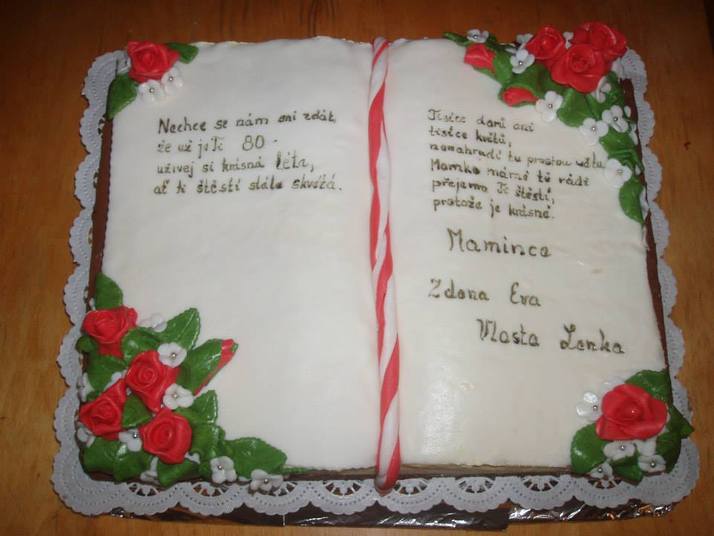 Nechce se nám ani zdát,
že už je Ti 80.
uživej si krásná léta,
ať ti štěstí stále skvétá.
Tisíce darů ani
tisíce květů,
nenahradí tu prostou větu
Mamko máme tě rádi
přejeme Ti štěstí,
protože je krásné.
Mamince
Zdena Eva
Vlasta Lenka